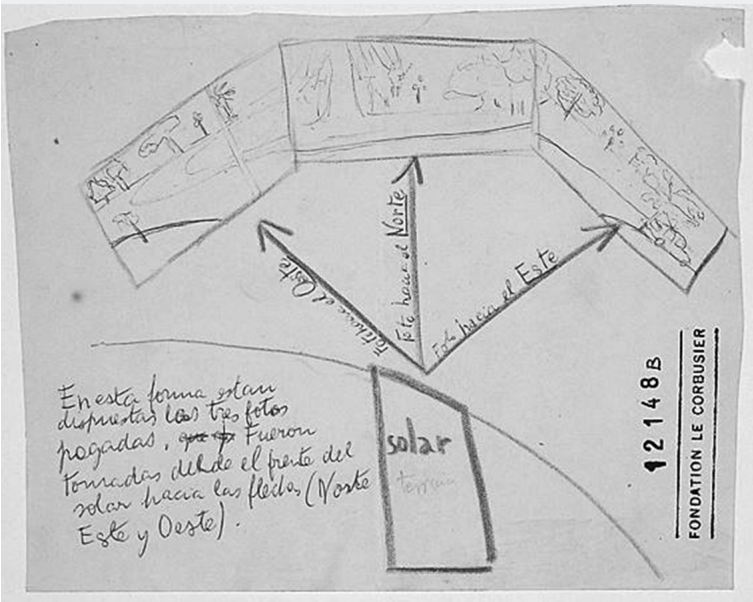 Foto hacia el Oeste
Foto hacia el Norte
Foto hacia el Este
En esta forma estan
dispuestas las tres fotos
pagadas, Fueron
tomadas desde el frente del
solar hacia las flechas (Norte
Este y Oeste).
solar
terreno
12148B
FONDATION LE CORBUSIER